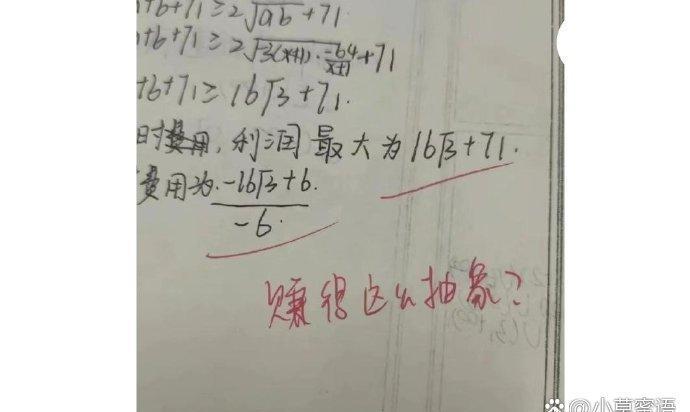 +b+71≥2√ab+71
+b+71≥2√3(x+1)·-64/x+1+71
+b+71≥16√3+71.
时费用,利润最大为16√3+71.
费用为.-16√3+6./-6.
赚得这么抽象?
@小草蜜语